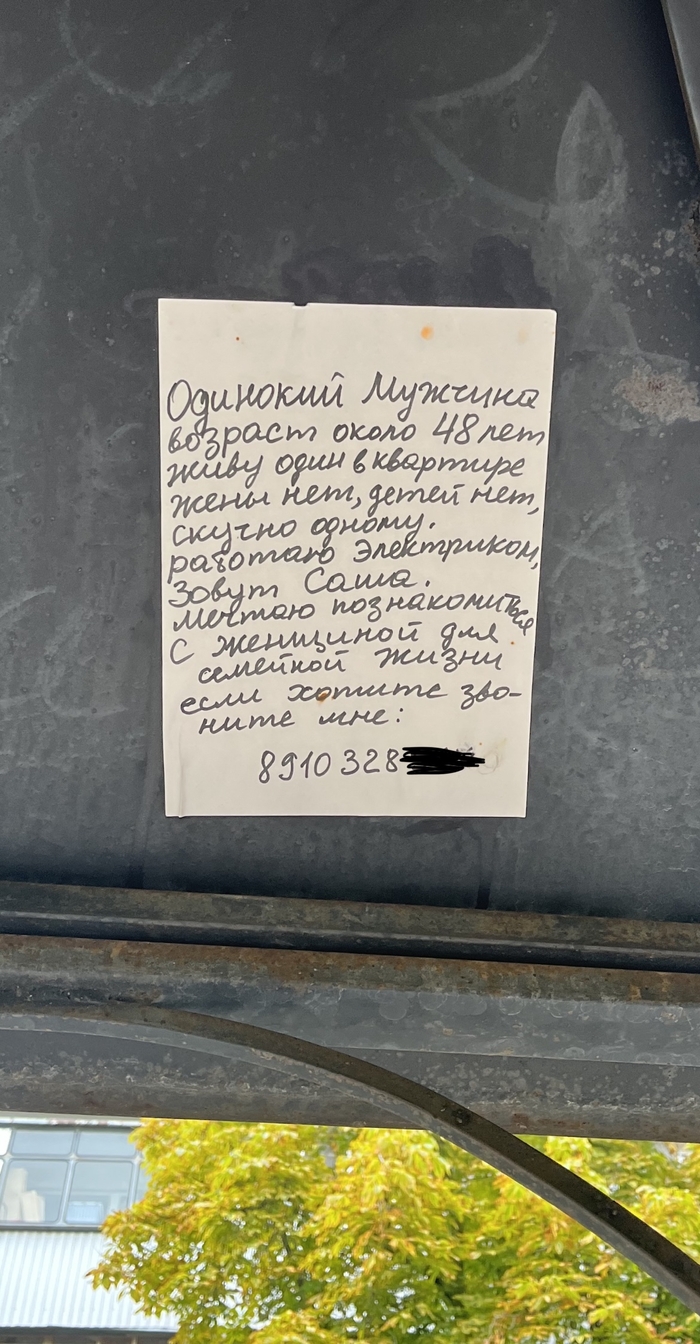 Одинокий Мужчина
возраст около 48 лет
живу один в квартире
жены нет, детей нет,
скучно одному.
работаю электриком,
Зовут Саша.
Мечтаю познакомиться
С женщиной для
семейной жизни
если хотите зво-
ните мне:
8910 328